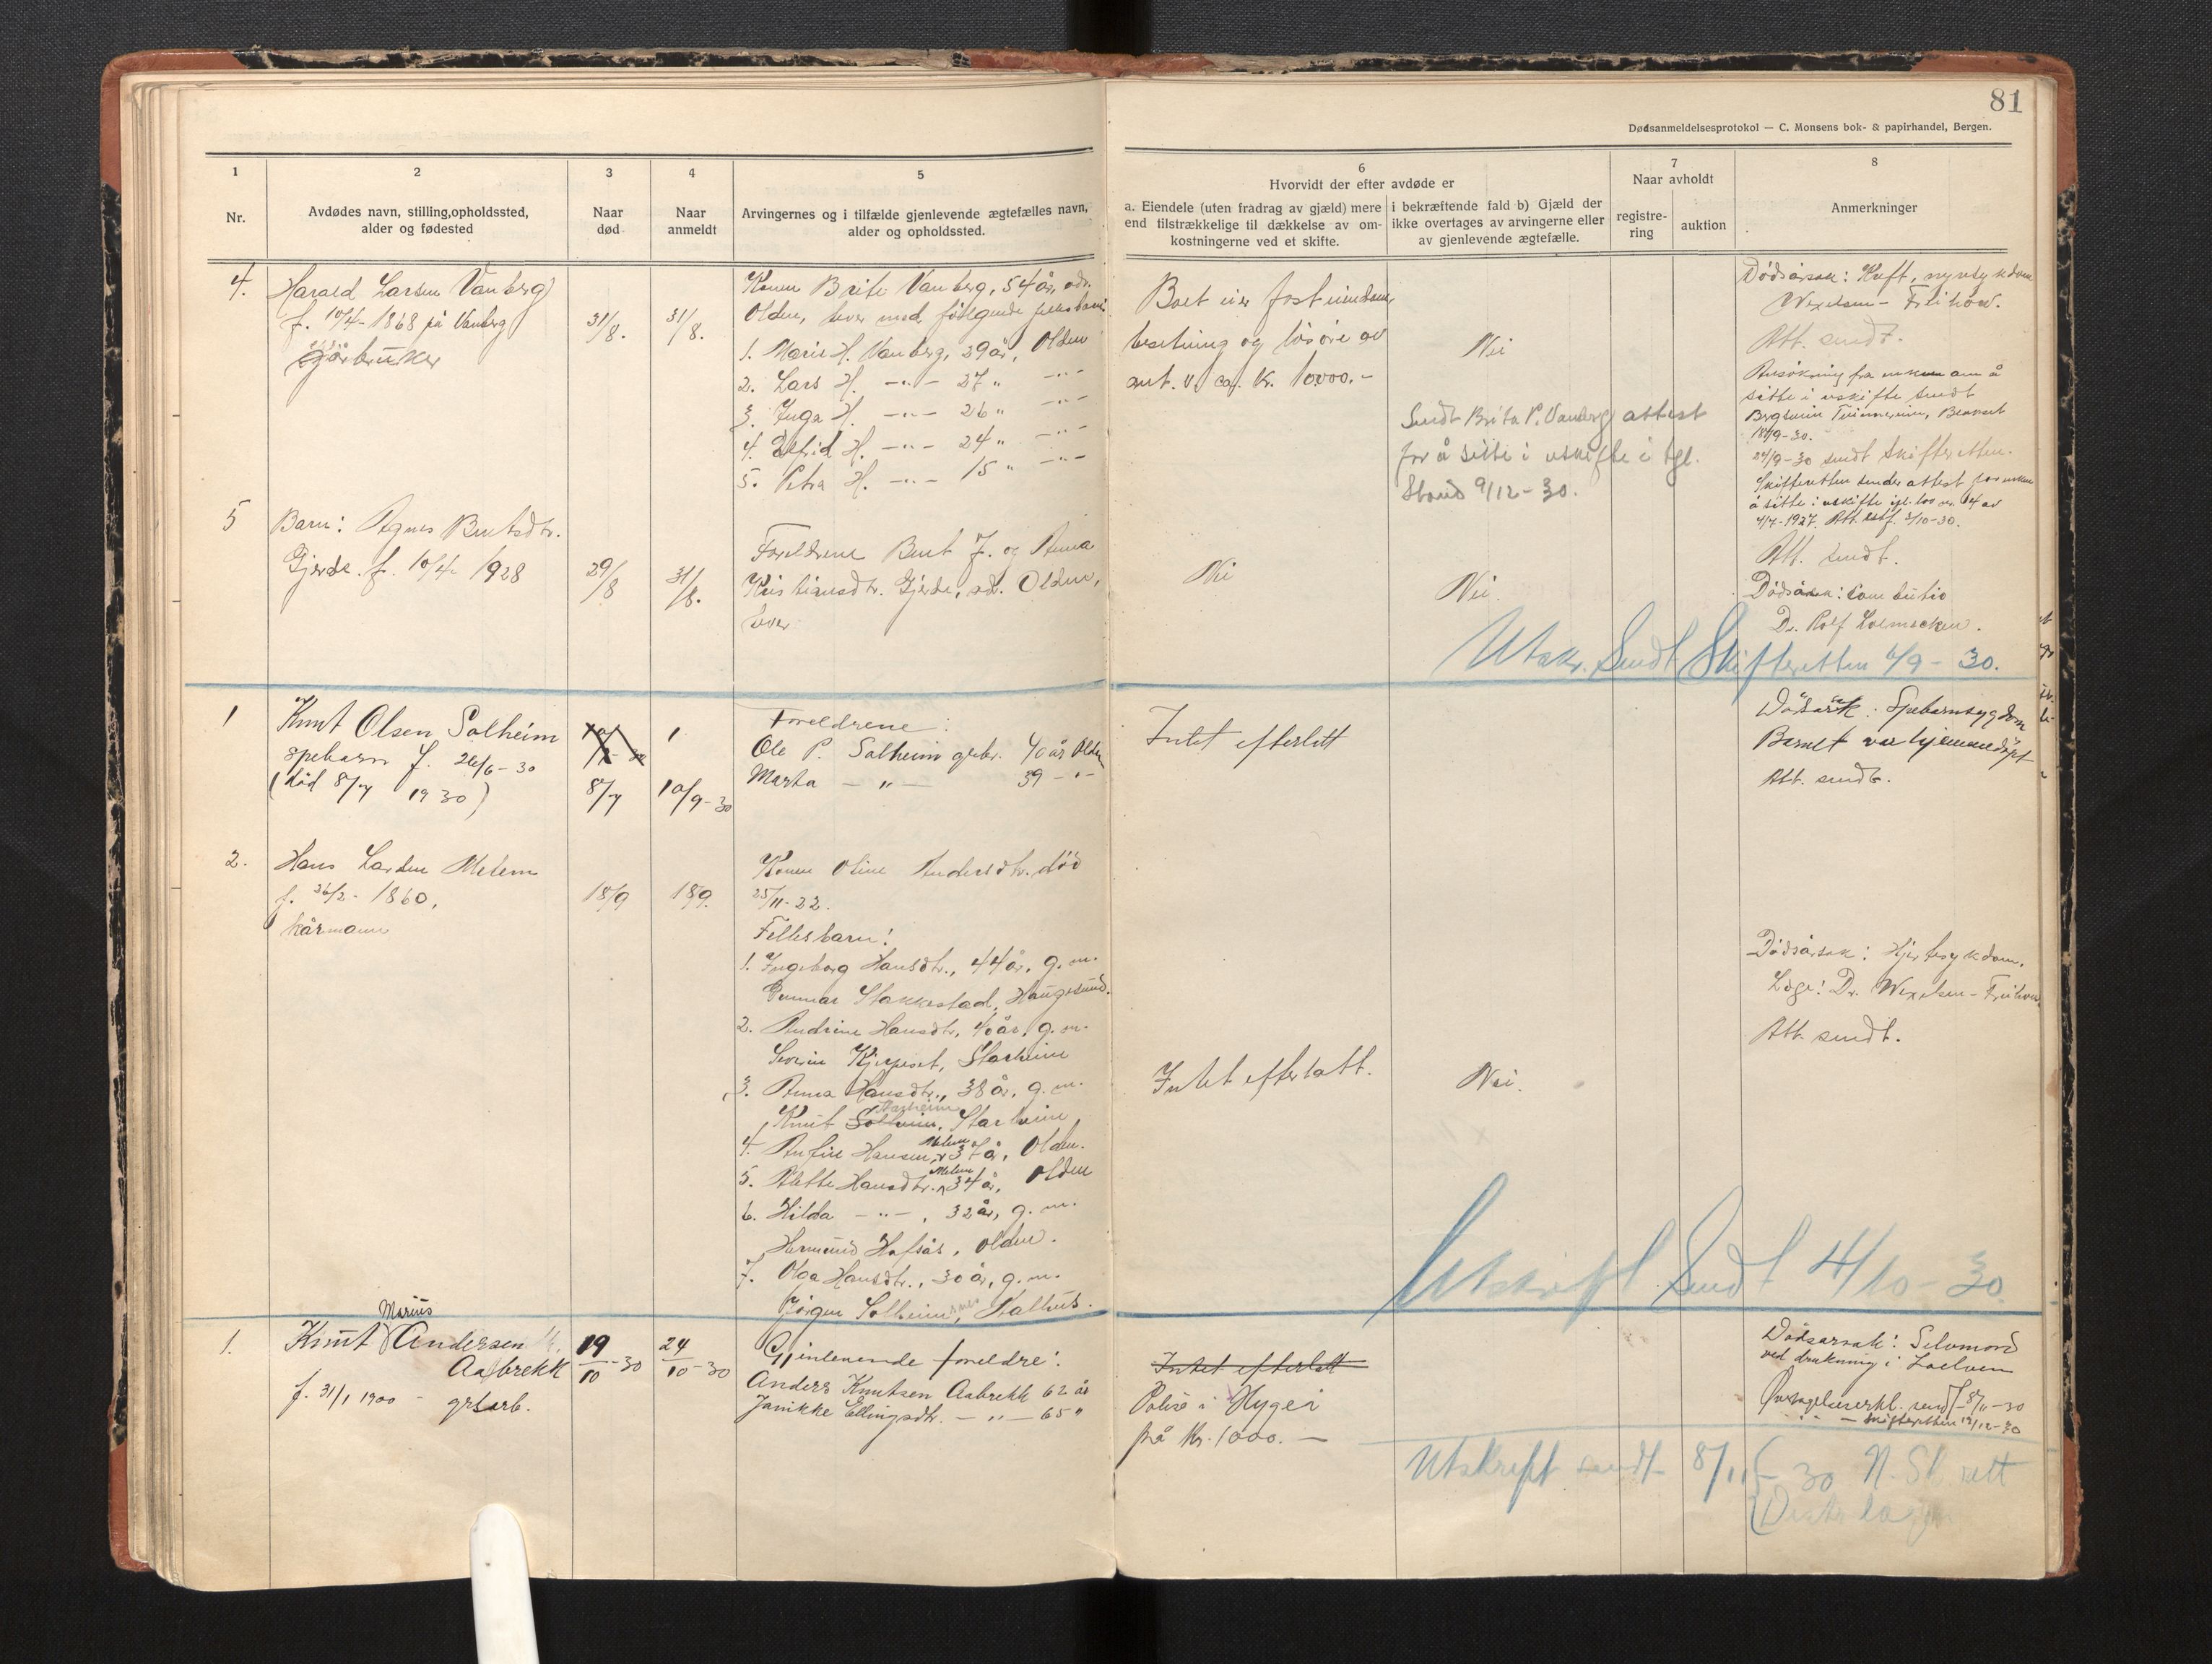 81
Dødsanmeldelsesprotokol — C. Monsens bok- & papirhandel, Bergen.
1
Nr.
2
Avdødes navn, stilling, opholdssted,
alder og fødested
3
Naar
død
4
Naar
anmeldt
5
Arvingernes og i tilfælde gjenlevende ægtefælles navn,
alder og opholdssted.
6
Hvorvidt der efter avdøde er
a. Eiendele (uten fradrag av gjæld) mere
end tilstrækkelige til dækkelse av om-
kostningerne ved et skifte.
i bekræftende fald b) Gjæld der
ikke overtages av arvingerne eller
av gjenlevende ægtefælle.
7
Naar avholdt
registre-
ring
auktion
8
Anmerkninger
4.
Harald Larsen Vanberg
f. 10/4-1868 på Vanberg
gårbruker
31/8.
31/8.
Konen Brite Vanberg, 54 år, adr.
Olden, lever med følgende
1. Marie H. Vanberg, 29 år, Olden
2. Lars H. —"— 27 " —"—
3. Inga H. —"— 26 " —"—
4. H. —"— 24 " —"—
5. Petra H. —"— 15 " —"—
Boet eier fast eiendom,
besetning og løsøre av
ant. v. ca. kr. 10000.-
Nei
Sendt Brita P. Vanberg attest
for å sitte i uskifte i tgl.
9/12-30.
Dødsårsak: Kreft, nyresykdom
Wexelsen-
Att. sendt.
Ansøkning fra enken om å
sitte i uskifte sendt
18/9-30.
24/9-30 sendt Skifteretten.
Skifteretten sender attest for enken
å sitte i uskifte
4/7-1927. Att. 2/10-30.
5
Barn: Agnes Berntsdtr.
Gjerde. f. 10/4- 1928
29/8
31/8.
Foreldrene Bernt J. og Anna
Kristiansdtr. Gjerde, adr. Olden,
lever
Nei
Nei.
Att. sendt.
Dødsårsak: Combustio
Dr. Rolf
Utskr. Sendt Skifteretten 6/9-30.
1
Knut Olsen Solheim
spebarn f. 26/6-30
(død 8/7 1930)
8/7
1
10/9-30
Foreldrene:
Ole P. Solheim grbr. 40 år Olden
Marta —"— 39 -"-
Intet efterlatt
Dødsårsak: Spebarnsygdom
Barnet var hjemmedøpt
Att. sendt.
2.
Hans Larsen Melem
f. 26/2-1860,
kårmann
18/9
18/9.
Konen Oline Andersdtr. død
25/11-22.
Fellesbarn:
1. Ingeborg Hansdtr., 44 år, g. m.
Gunnar Stakkestad, Haugesund.
2. Andrine Hansdtr, 40 år, g. m.
Severin Kjerpeset, Starheim
3. Anna Hansdtr., 38 år, g. m.
Starheim
Knut Solheim, Starheim
Melem
4. Anfin Hansen, 37 år, Olden.
Melem
5. Alette Hansdtr. 34 år, Olden
6. Hilda —"—, 32 år, g. m.
Hermund Hafsås, Olden.
7. Olga Hansdtr., 30 år, g. m.
Jørgen Solheim
Intet efterlatt.
Nei.
Dødsårsak: Hjertesykdom.
Læge: Dr. Wexelsen-
Att. sendt.
Utskrift Sendt 4/10-30.
1.
Marius
Knut Andersen
Aabrekk
f. 31/1 1900 - grbarb.
19/10-30
24/10-30
Gjenlevende foreldre:
Anders Knutsen Aabrekk 62 år
Janikke Ellingsdtr. —"— 65 "
Intet efterlatt
Polise i Hygei
på Kr. 1000.—
Dødsårsak: Selvmord
ved drukning i Loelven
Overtagelseserkl. sendt 8/11-30
- " - Skifteretten 12/12-30
Utskrift sendt 8/11-30 N. Sk rett